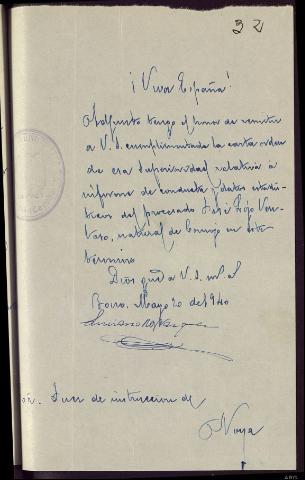 32
¡Viva España!
Adjunto tengo el honor de remitir
a V.S. cumplimentada la carta orden
de esa Superioridad relativa à
informe de conducta y datos estadís-
ticos del procesado José Rojo Ven-
toso, natural de en este
término
Dios gude a V.S. m. a.
Boiro. Mayo 20 de 1940
Sr. Juez de instruccion de
Noya